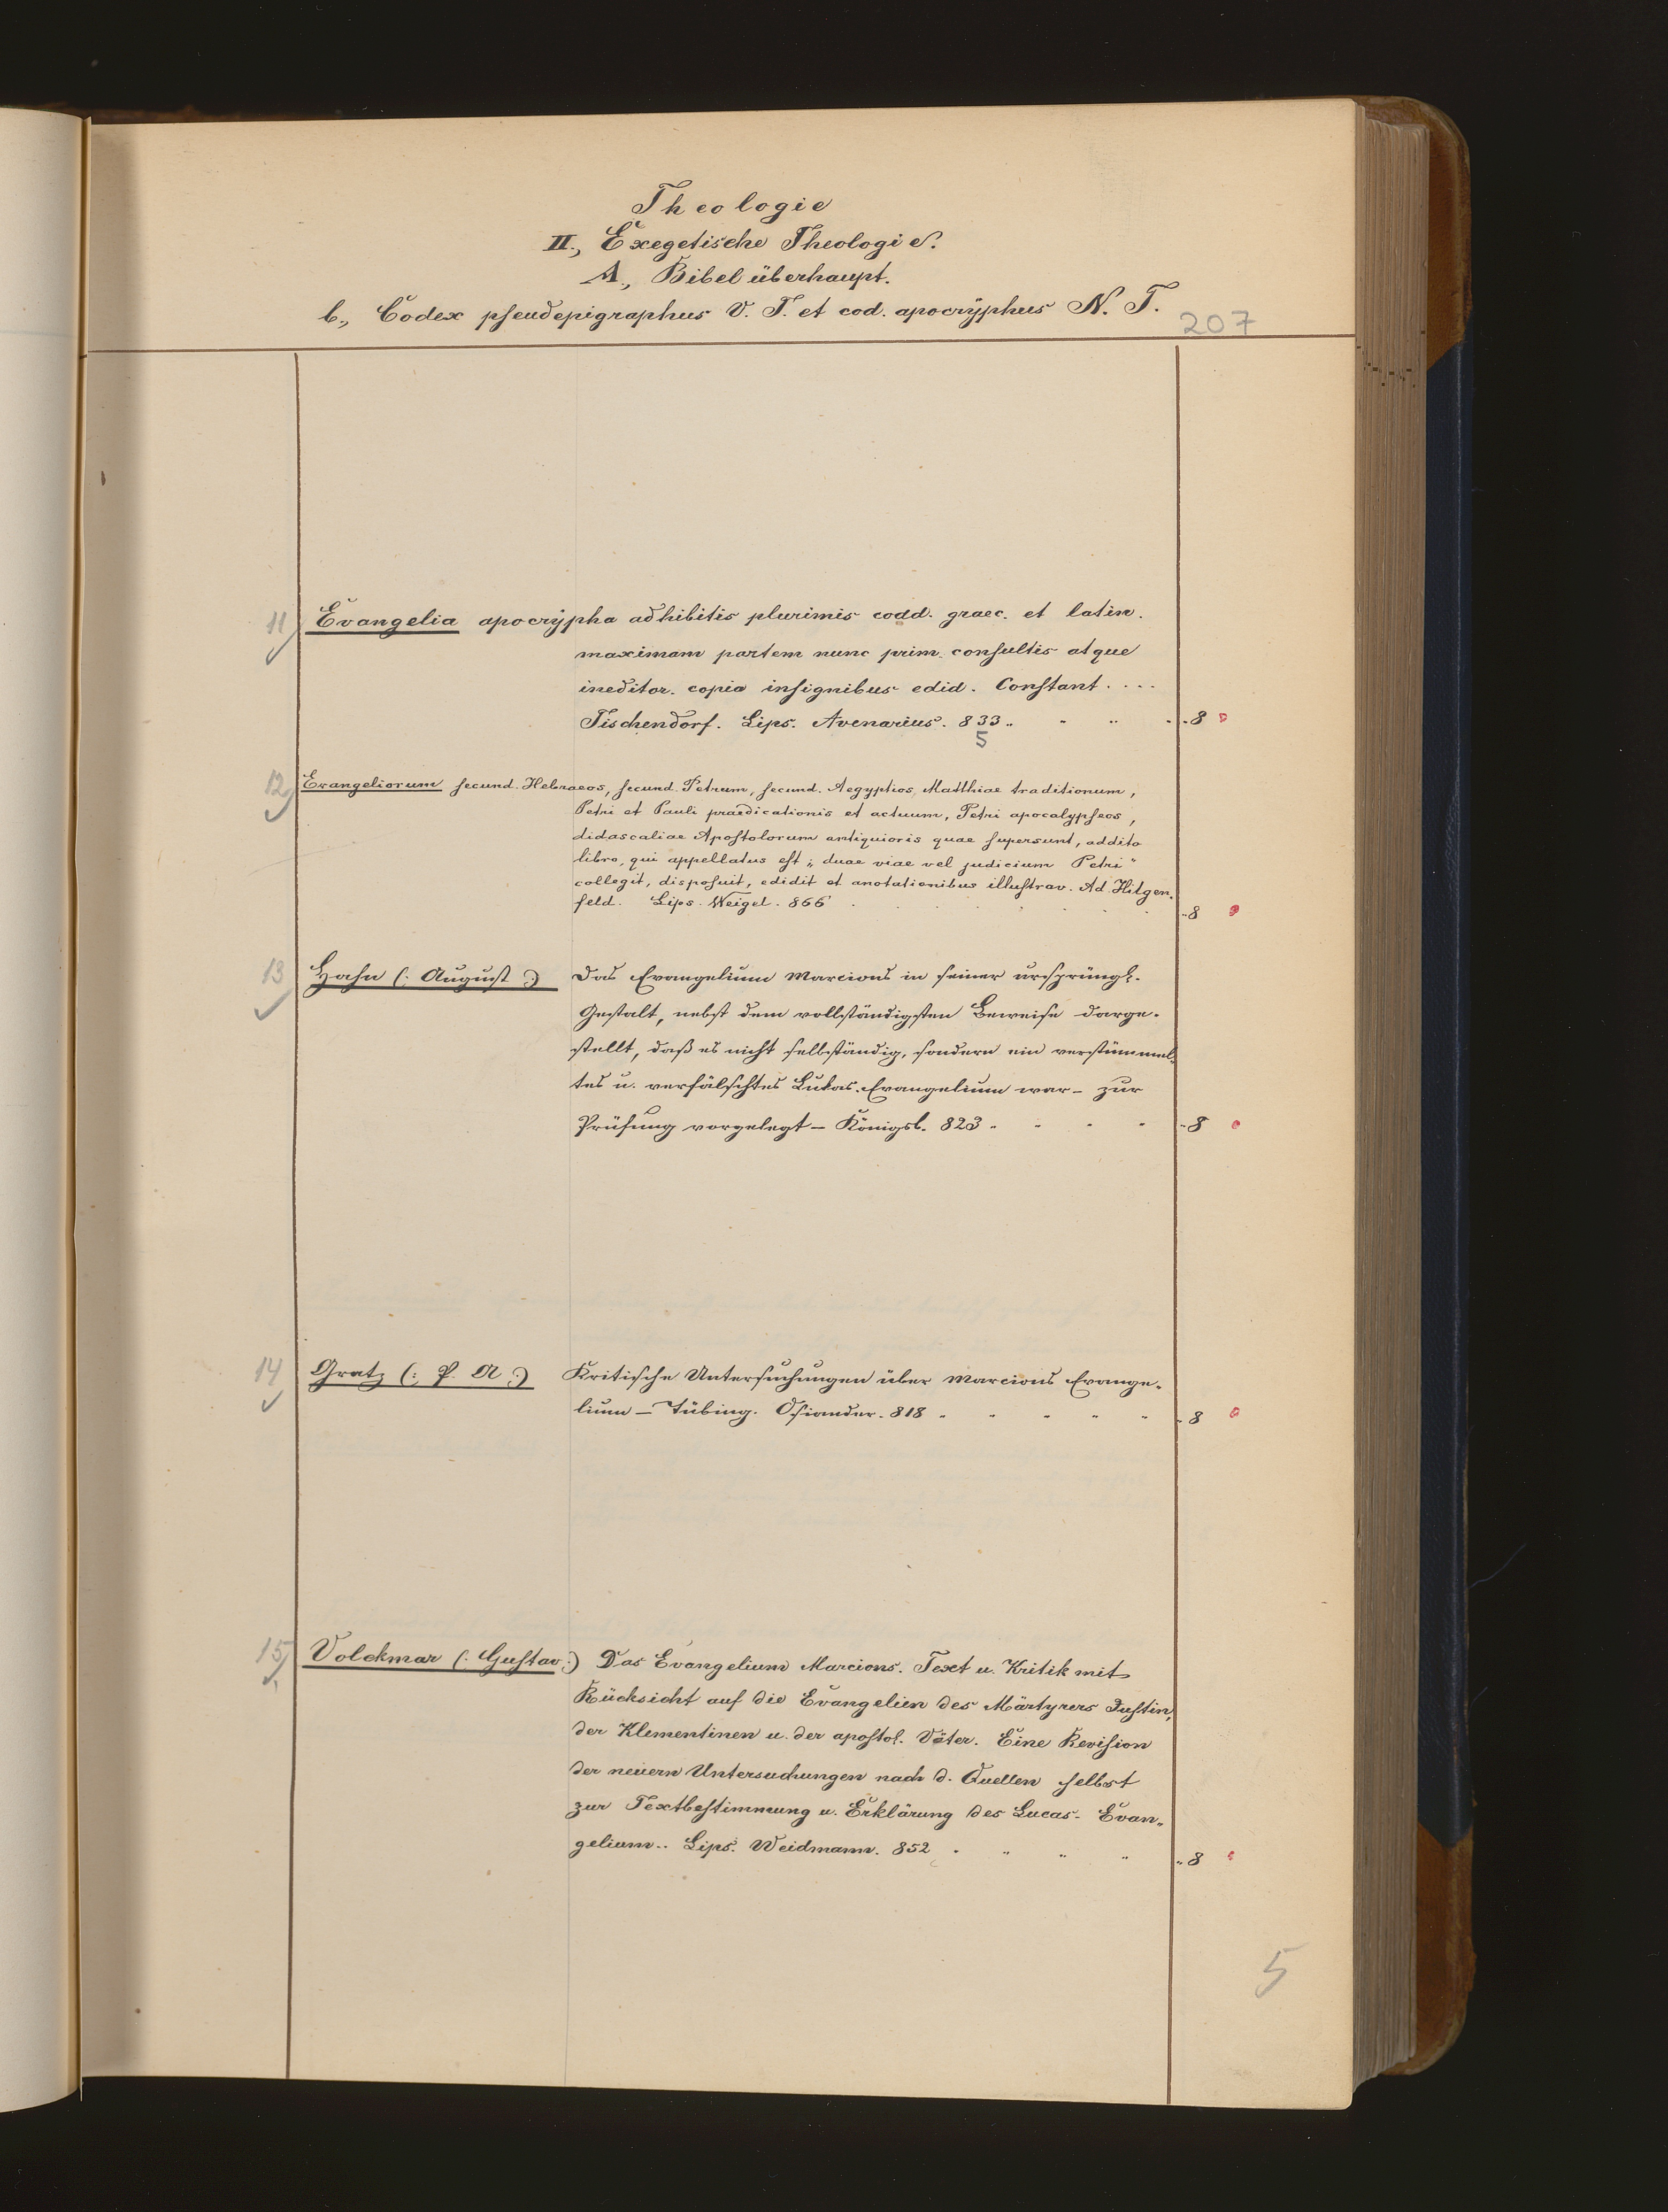 Theologie
II., Exegetische Theologie.
A., Bibel überhaupt.
b., Codex pseudepigraphus V. T. et cod. apocryphus N. T.
207
11 Evangelia apocrypha adhibitis plurimis codd. graec. et latin.
maximam partem nunc prim. consultis atque
ineditor. copia insignibus edid. Constant. ...
Tischendorf. Lips. Avenarius. 833. 8
5
12 Evangeliorum secund. Hebraeos, secund. Petrum, secund. Aegyptios, Matthiae traditionum,
Petri et Pauli praedicationis et actuum, Petri apocalypseos,
didascaliae Apostolorum antiquioris quae supersunt, addito
libro, qui appellatus est „duae viae vel judicium Petri"
collegit, disposuit, edidit et anotationibus illustrav. Ad. Hilgen-
feld. Lips. Weigel. 866 8
13 Hahn (: August :) Das Evangelium Marcions in seiner ursprüngl.
Gestalt, nebst dem vollständigsten Beweise darge-
stellt, daß es nicht selbständig, sondern ein verstümmel-
tes u. verfälschtes Lukas-Evangelium war – zur
Prüfung vorgelegt – Königsb. 823 8
14 Gratz (: P. A :) Kritische Untersuchungen über Marcions Evange-
lium – Tübing. Osiander. 818 8
15 Volckmar (: Gustav :) Das Evangelium Marcions. Text u. Kritik mit
Rücksicht auf die Evangelien des Märtyrers Justin,
der Klementinen u. der apostol. Väter. Eine Revision
der neuern Untersuchungen nach d. Quellen selbst
zur Textbestimmung u. Erklärung des Lucas- Evan-
gelium.. Lips. Weidmann. 852 8
5